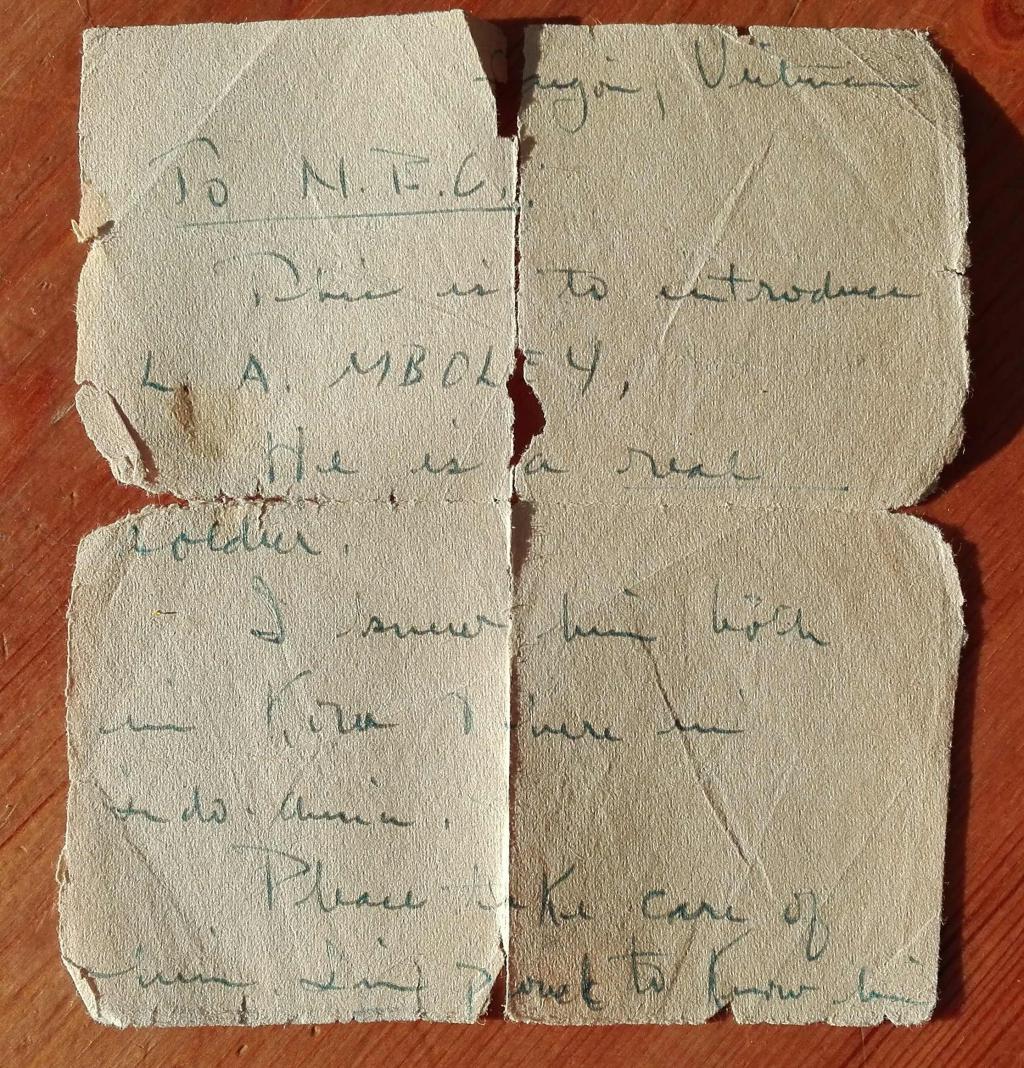 Saigon, Vietnam
To N.F.C.:
This is to introduce
L. A. MBOLEY,
He is a real
soldier.
I knew him both
in Korea & here in
Indo-china.
Please take care of
him. I'm proud to know him